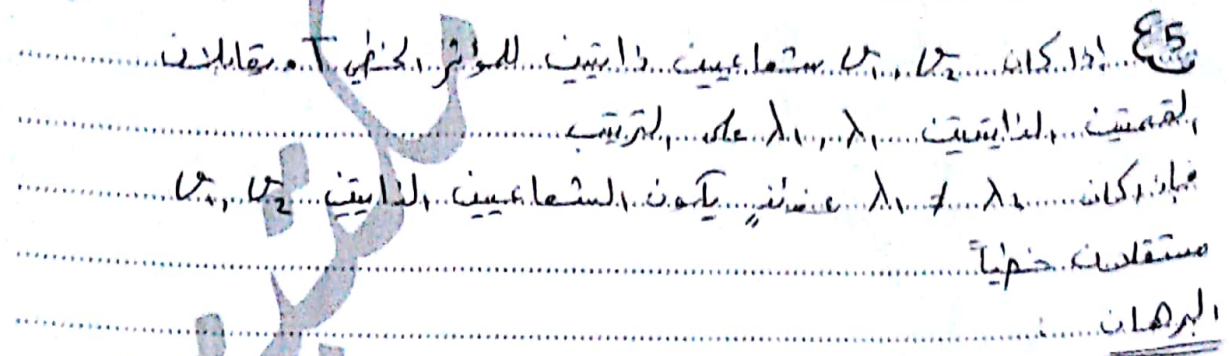 5ع اذا كان v₁, v₂ شعاعين ذاتيين للمؤثر الخطي T مقابلان
للقيمتين الذاتيتين λ₁, λ₂ على الترتيب
فإذا كان λ₁ ≠ λ₂ عندئذٍ يكون الشعاعيين الذاتيين v₁, v₂
مستقلان خطياً
البرهان: